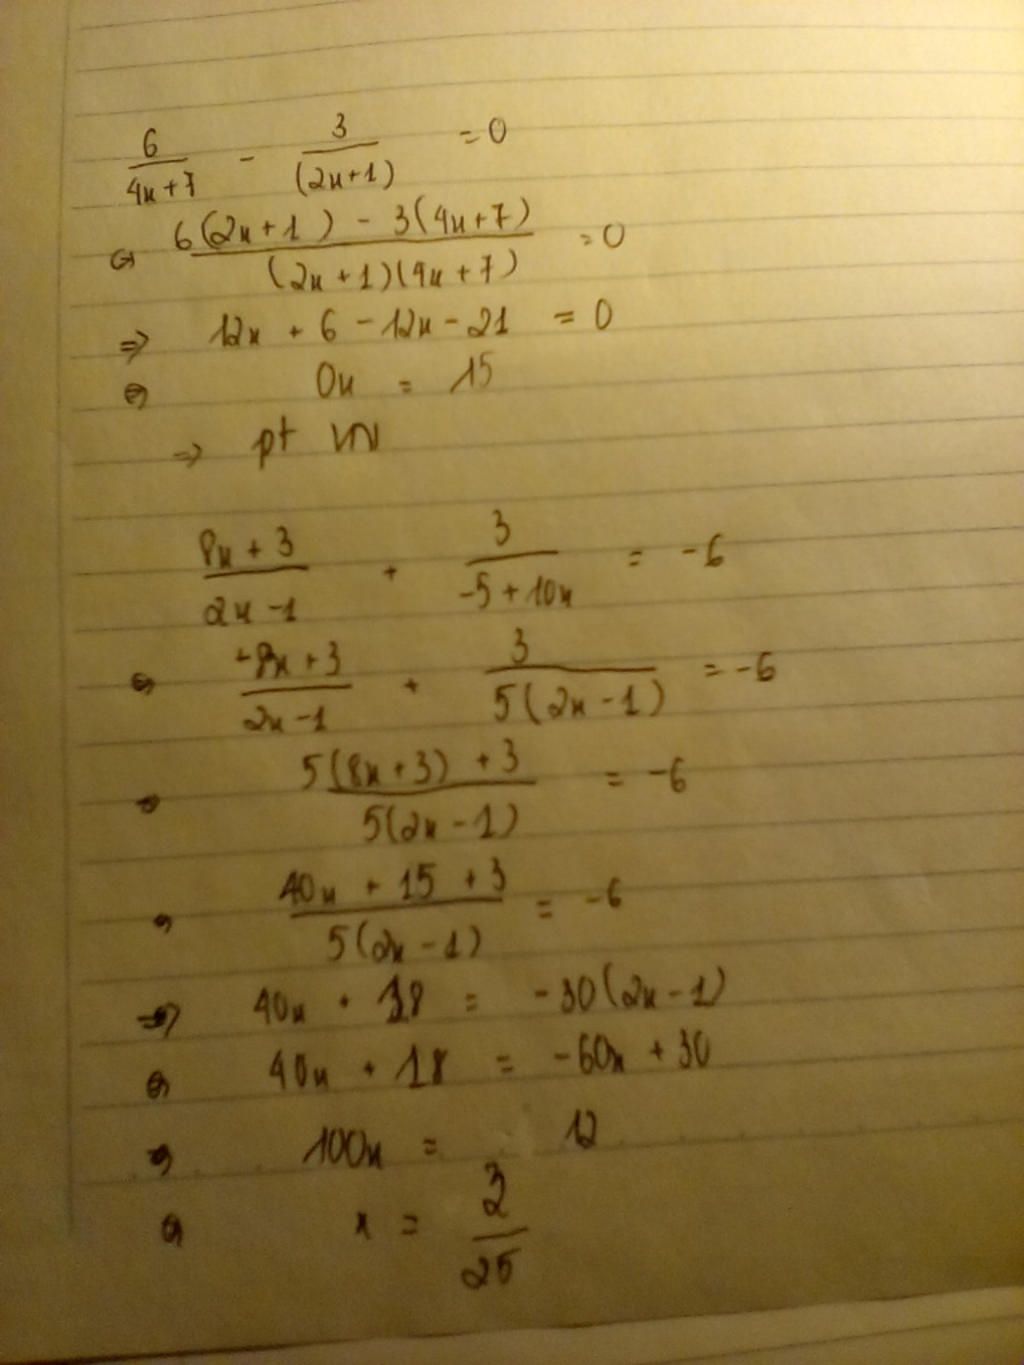 6/(4x+7) - 3/(2x+1) = 0
⇔ (6(2x+1) - 3(4x+7))/((2x+1)(4x+7)) = 0
⇒ 12x + 6 - 12x - 21 = 0
⇔ 0x = 15
⇒ pt VN
(8x+3)/(2x-1) + 3/(-5+10x) = -6
⇔ (8x+3)/(2x-1) + 3/(5(2x-1)) = -6
⇔ (5(8x+3)+3)/(5(2x-1)) = -6
⇔ (40x+15+3)/(5(2x-1)) = -6
⇒ 40x + 18 = -30(2x-1)
⇔ 40x + 18 = -60x + 30
⇔ 100x = 12
⇔ x = 3/25